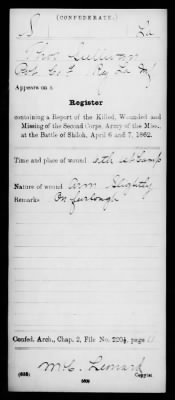 (CONFEDERATE.)
S | La
Sullivan
Appears on a
Register
containing a Report of the Killed, Wounded and
Missing of the Second Corps, Army of the Miss.,
at the Battle of Shiloh, April 6 and 7, 1862.
Time and place of wound
Nature of wound Arm Slightly
Remarks On furlough
Confed. Arch., Chap. 2, File No. 220½, page
Leonard
(635) Copyist.